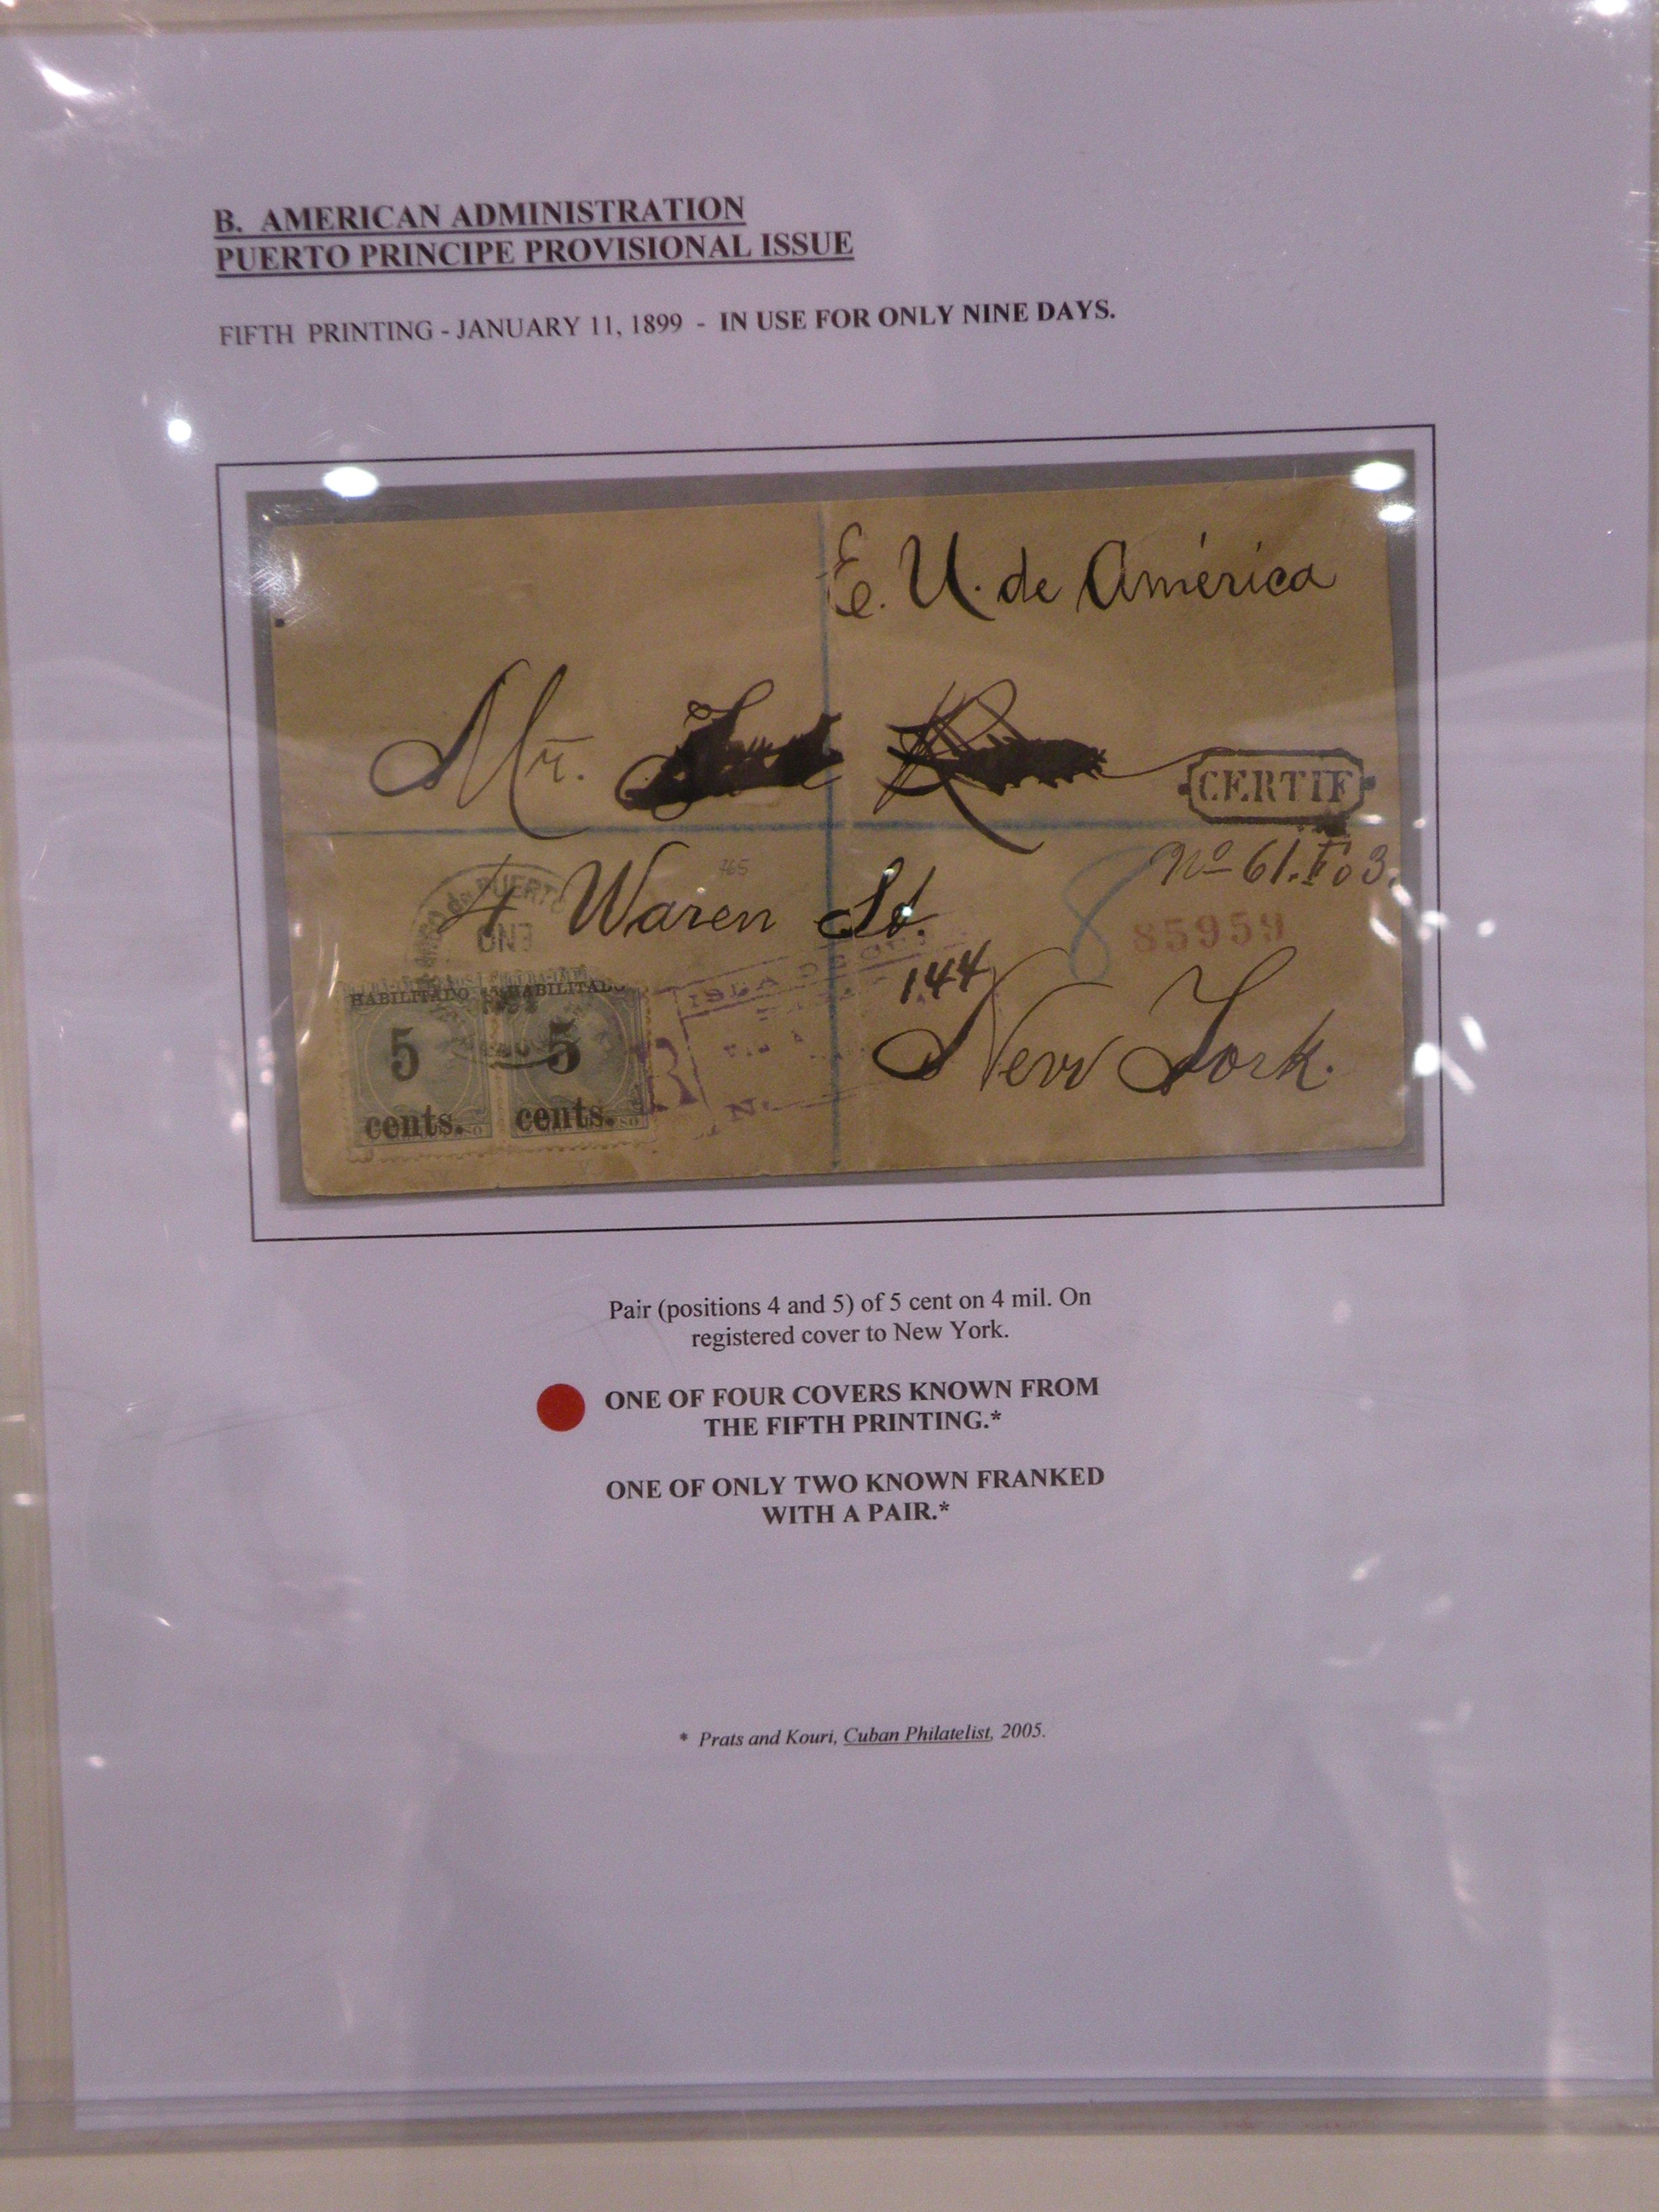 B. AMERICAN ADMINISTRATION
PUERTO PRINCIPE PROVISIONAL ISSUE
FIFTH PRINTING - JANUARY 11, 1899 - IN USE FOR ONLY NINE DAYS.
E. U. de América
Mr.
CERTIF
No 61. Fo 3.
4 Waren St.
85959
8
144
New York.
PUERTO
ENO
HABILITADO HABILITADO
5 5
cents. cents.
ISLA DE
R
N.
Pair (positions 4 and 5) of 5 cent on 4 mil. On
registered cover to New York.
ONE OF FOUR COVERS KNOWN FROM
THE FIFTH PRINTING.*
ONE OF ONLY TWO KNOWN FRANKED
WITH A PAIR.*
* Prats and Kouri, Cuban Philatelist, 2005.